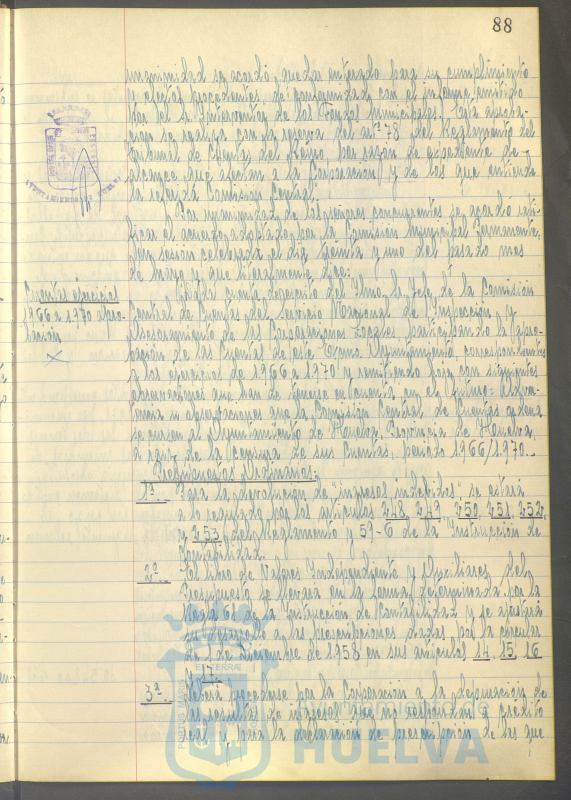 88
unanimidad se acordó, quedar enterado para su cumplimiento
y efectos procedentes de conformidad con el informe emitido
por el Sr. Interventor de los Fondos municipales. Esta
se realiza con la reserva del artº 78 del Reglamento del
Tribunal de Cuentas del Reino, por razón de expediente de
alcance que afectan a la Corporación y de los que entiende
la referida Comisión Central.
Por unanimidad de los señores concurrentes se acordó rati-
ficar el acuerdo adoptado por la Comisión Municipal Permanente,
en sesión celebrada el día treinta y uno del pasado mes
de Mayo y que literalmente dice:
Cuentas ejercicios
1966 a 1970 apro-
bación
cuenta del escrito del Ilmo. Sr. Jefe de la Comisión
Central de Cuentas del Servicio Nacional de Inspección y
Asesoramiento de las Corporaciones Locales participando la apro-
bación de las Cuentas de este Excmo. Ayuntamiento, correspondientes
a los ejercicios de 1966 a 1970 y remitiendo hoja con siguientes
observaciones que han de tenerse en cuenta en el futuro: Adver-
tencia u observaciones que la Comisión Central de Cuentas ordena
se cursen al Ayuntamiento de Huelva, Provincia de Huelva,
a raiz de la censura de sus Cuentas, periodo 1966/1970.-
Presupuestos Ordinarios:
1ª.- Para la devolución de "ingresos indebidos" se estará
a lo regulado por los artículos 248, 249, 250, 251, 252,
y 253 del Reglamento y 59-6 de la Instrucción de
Contabilidad.
2ª.- El libro de Valores Independiente y Auxiliares del
Presupuesto se llevará en la forma determinada por la
Regla 61 de la Instrucción de Contabilidad y se ajustará
a las prescripciones dadas por la circular
de 1 de Diciembre de 1958 en sus artículos 14, 15, 16
17.
3ª.- Deberá procederse por la Corporación a la depuración de
las resultas de ingresos que no respondan a crédito
real y para la declaración de prescripción de las que
PORTUS MARIS
ET TERRAE
HUELVA